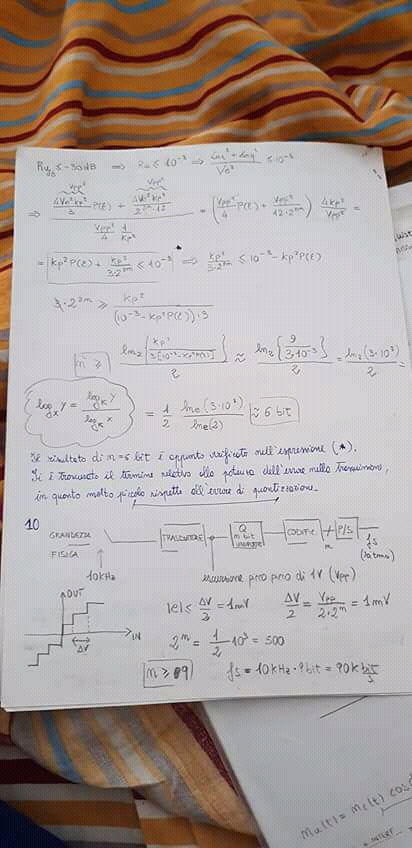 R_dB ≤ -30 dB ⇒ R ≤ 10⁻³ ⇒ ≤ 10⁻³
Vpp² Vpp²
⇒ (4V₀²kp²/3 P(ε) + 4V₀²kp²/2²ᵐ·12) / (Vpp²/4 · 1/kp²) = (Vpp²/4 P(ε) + Vpp²/12·2²ᵐ) 4kp²/Vpp² =
= kp² P(ε) + kp²/3·2²ᵐ ≤ 10⁻³ ⇒ kp²/3·2²ᵐ ≤ 10⁻³ - kp² P(ε)
2²ᵐ ≥ kp²/(10⁻³ - kp² P(ε))·3
n ≥ ln₂{kp²/3[10⁻³ - kp² P(ε)]}/2 ≈ ln₂{9/3·10⁻³}/2 = ln₂(3·10³)/2 =
logₓ y = logₖ y / logₖ x = 1/2 lnₑ(3·10³)/lnₑ(2) ≈ 6 bit
Il risultato di n = 6 bit è appunto verificato nell'espressione (*).
Si è trascurato il termine relativo alla potenza dell'errore nella trasmissione,
in quanto molto piccolo rispetto all'errore di quantizzazione.
10
GRANDEZZA FISICA TRASDUTTORE Q m bit UNIFORME CODIFIC. m P/S fs
10KHz
escursione picco picco di 1V (Vpp)
OUT IN ΔV
|e| ≤ ΔV/2 = 1mV ΔV/2 = Vpp/2·2ᵐ = 1mV
2ᵐ = 1/2 10³ = 500
n ≥ 9 fs = 10KHz · 9bit = 90K bit/s